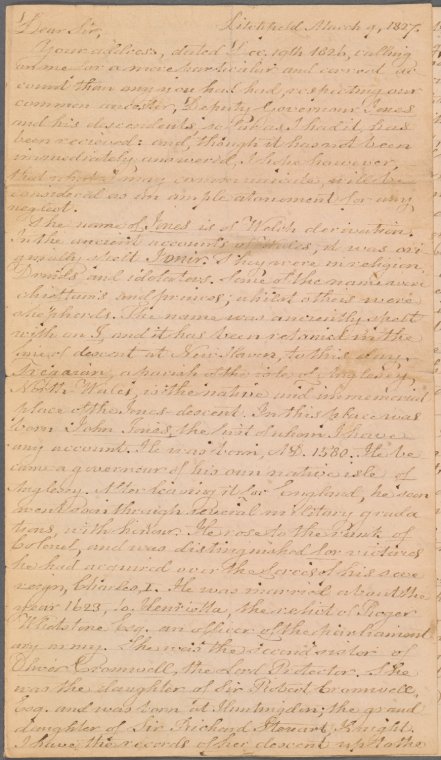 Dear Sir, Litchfield March 9, 1827.
Your address, dated Dec. 19th 1826, calling
on me for a more particular and correct ac
count than any you had had respecting our
common ancestor, Deputy Governour Jones
and his descendents, so far as I had it, has
been recieved: and, though it has not been
immediately answered, I hope however
that what I may communicate, will be
considered as an ample atonement for any
neglect.
The name of Jones is of Welch derivation.
In the ancient accounts of Wales, it was ori
ginally spelt Ionir. They were in religion,
Druids and idolators. Some of the name were
chieftains and princes; whilst others were
shepherds. The name was anciently spelt
with an I, and it has been retained in the
line of descent at New Haven, to this day.
a parish of the isle of Anglesey,
North Wales, is the native and immemorial
place of the Jones descent. In this place was
born John Jones, the first of whom I have
any account. He was born, A.D. 1580. He be
came a governour of his own native isle of
Anglesey. After leaving it for England, he soon
went soon through several military grada
tions, with honour. He rose to the rank of
Colonel, and was distinguished for victories
he had acquired over the forces of his sove
reign, Charles I. He was married about the
year 1623, to Henrietta, the relict of Roger
Whitstone Esq. an officer of the parliament
ary army. She was the second sister of
Oliver Cromwell, the Lord Protector. She
was the daughter of Sir Robert Cromwell,
Esq. and was born at Huntingdon; the grand
daughter of Sir Richard Stewart, Knight.
I have the records of her descent up to the